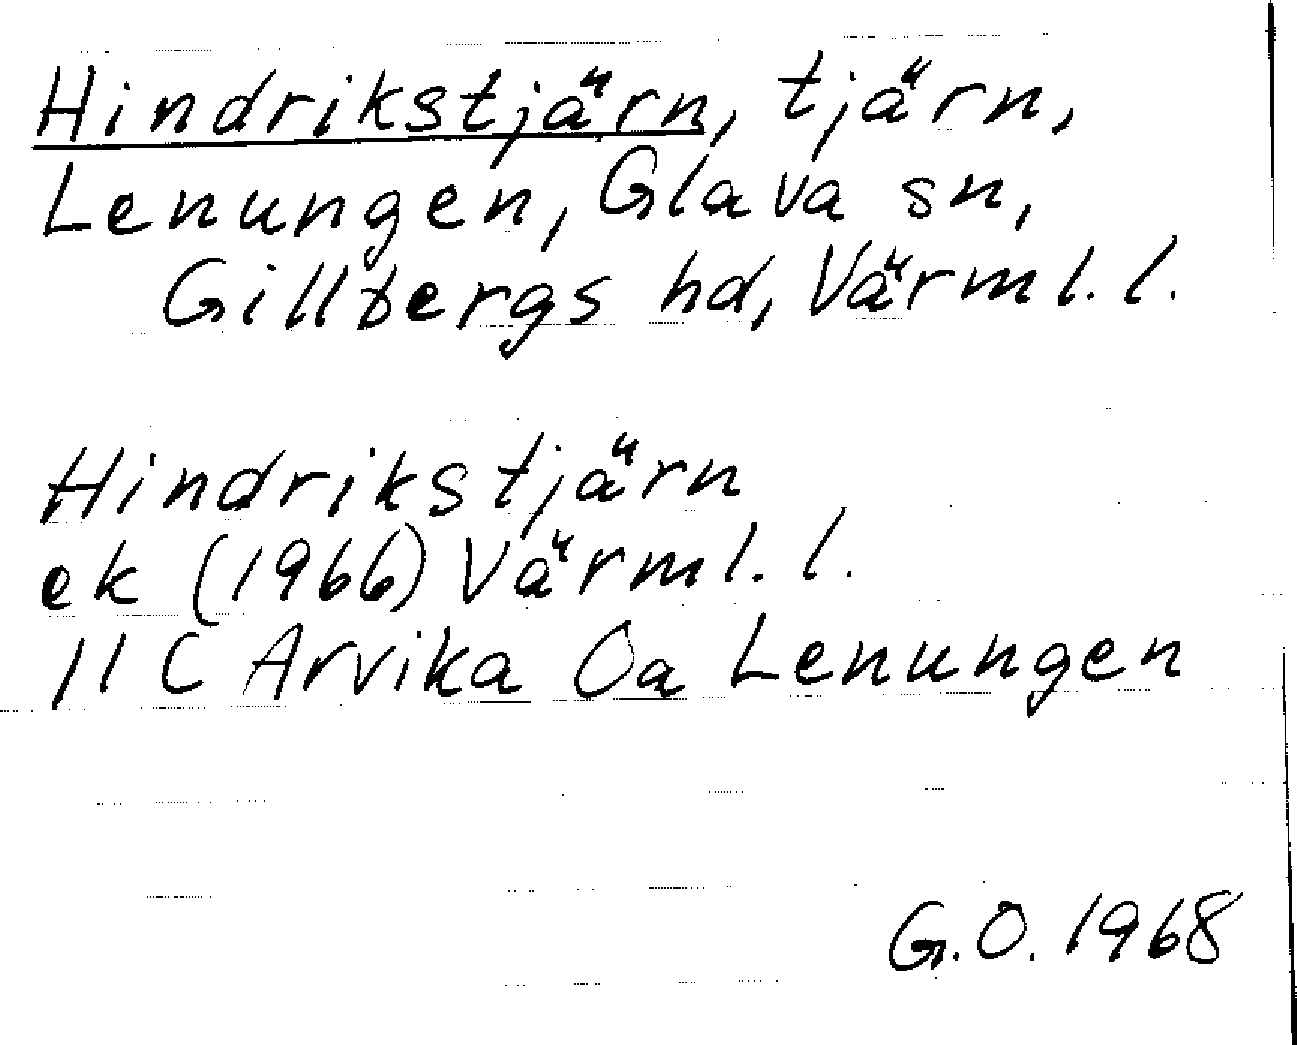 Hindrikstjärn, tjärn,
Lenungen, Glava sn,
Gillbergs hd, Värml. l.
Hindrikstjärn
ek (1966) Värml. l.
11 C Arvika Oa Lenungen
G.O. 1968